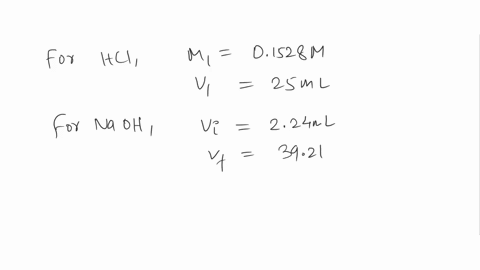 For HCl, M₁ = 0.1528M
V₁ = 25mL
For NaOH, Vi = 2.24mL
Vf = 39.21